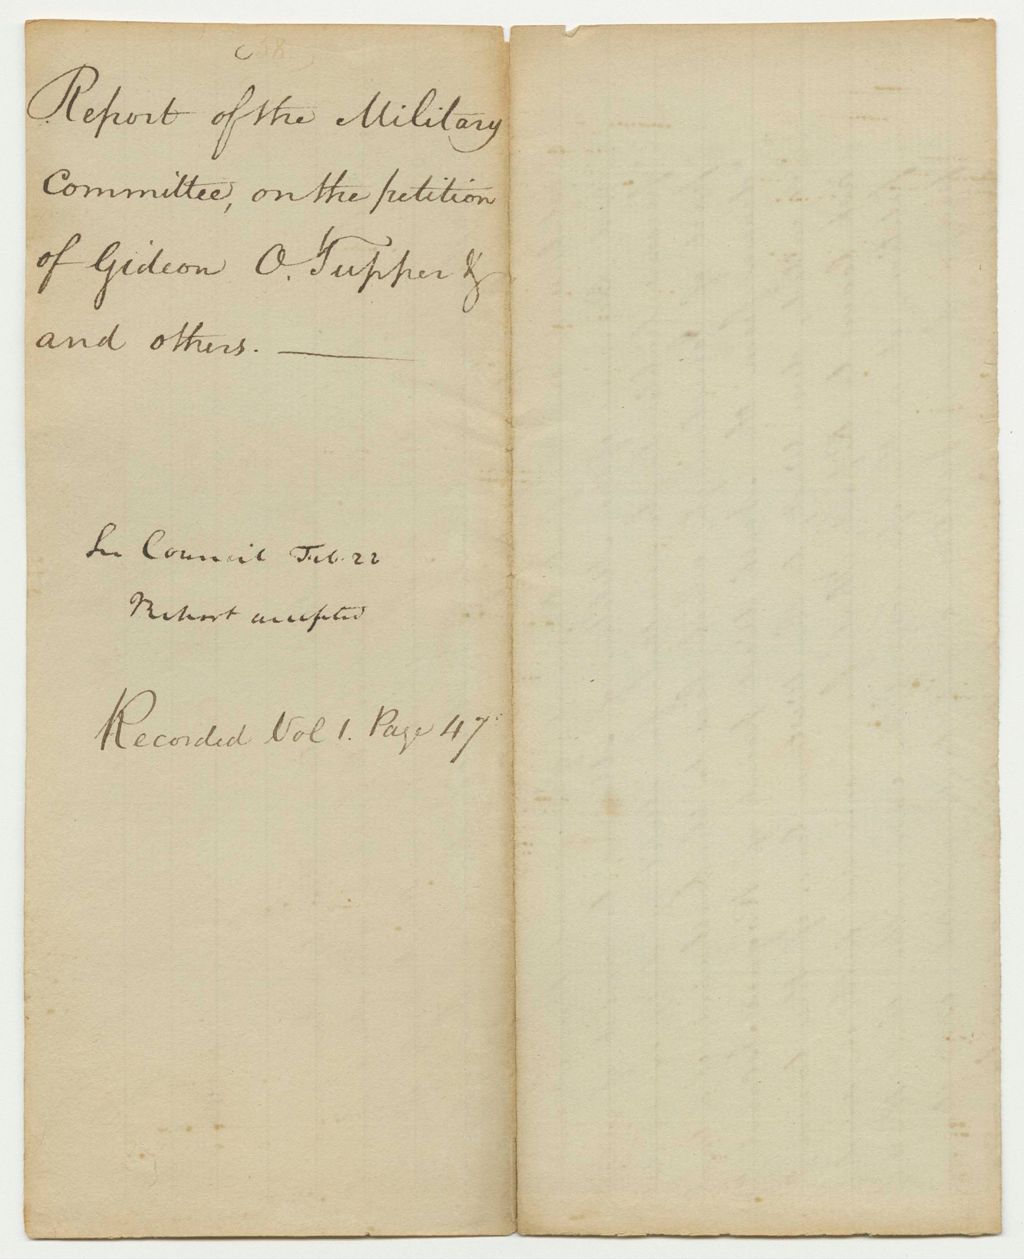 Report of the Military
Committee, on the petition
of Gideon O. Tupper &
and others.
In Council Feb. 22
Report accepted
Recorded Vol 1. Page 47